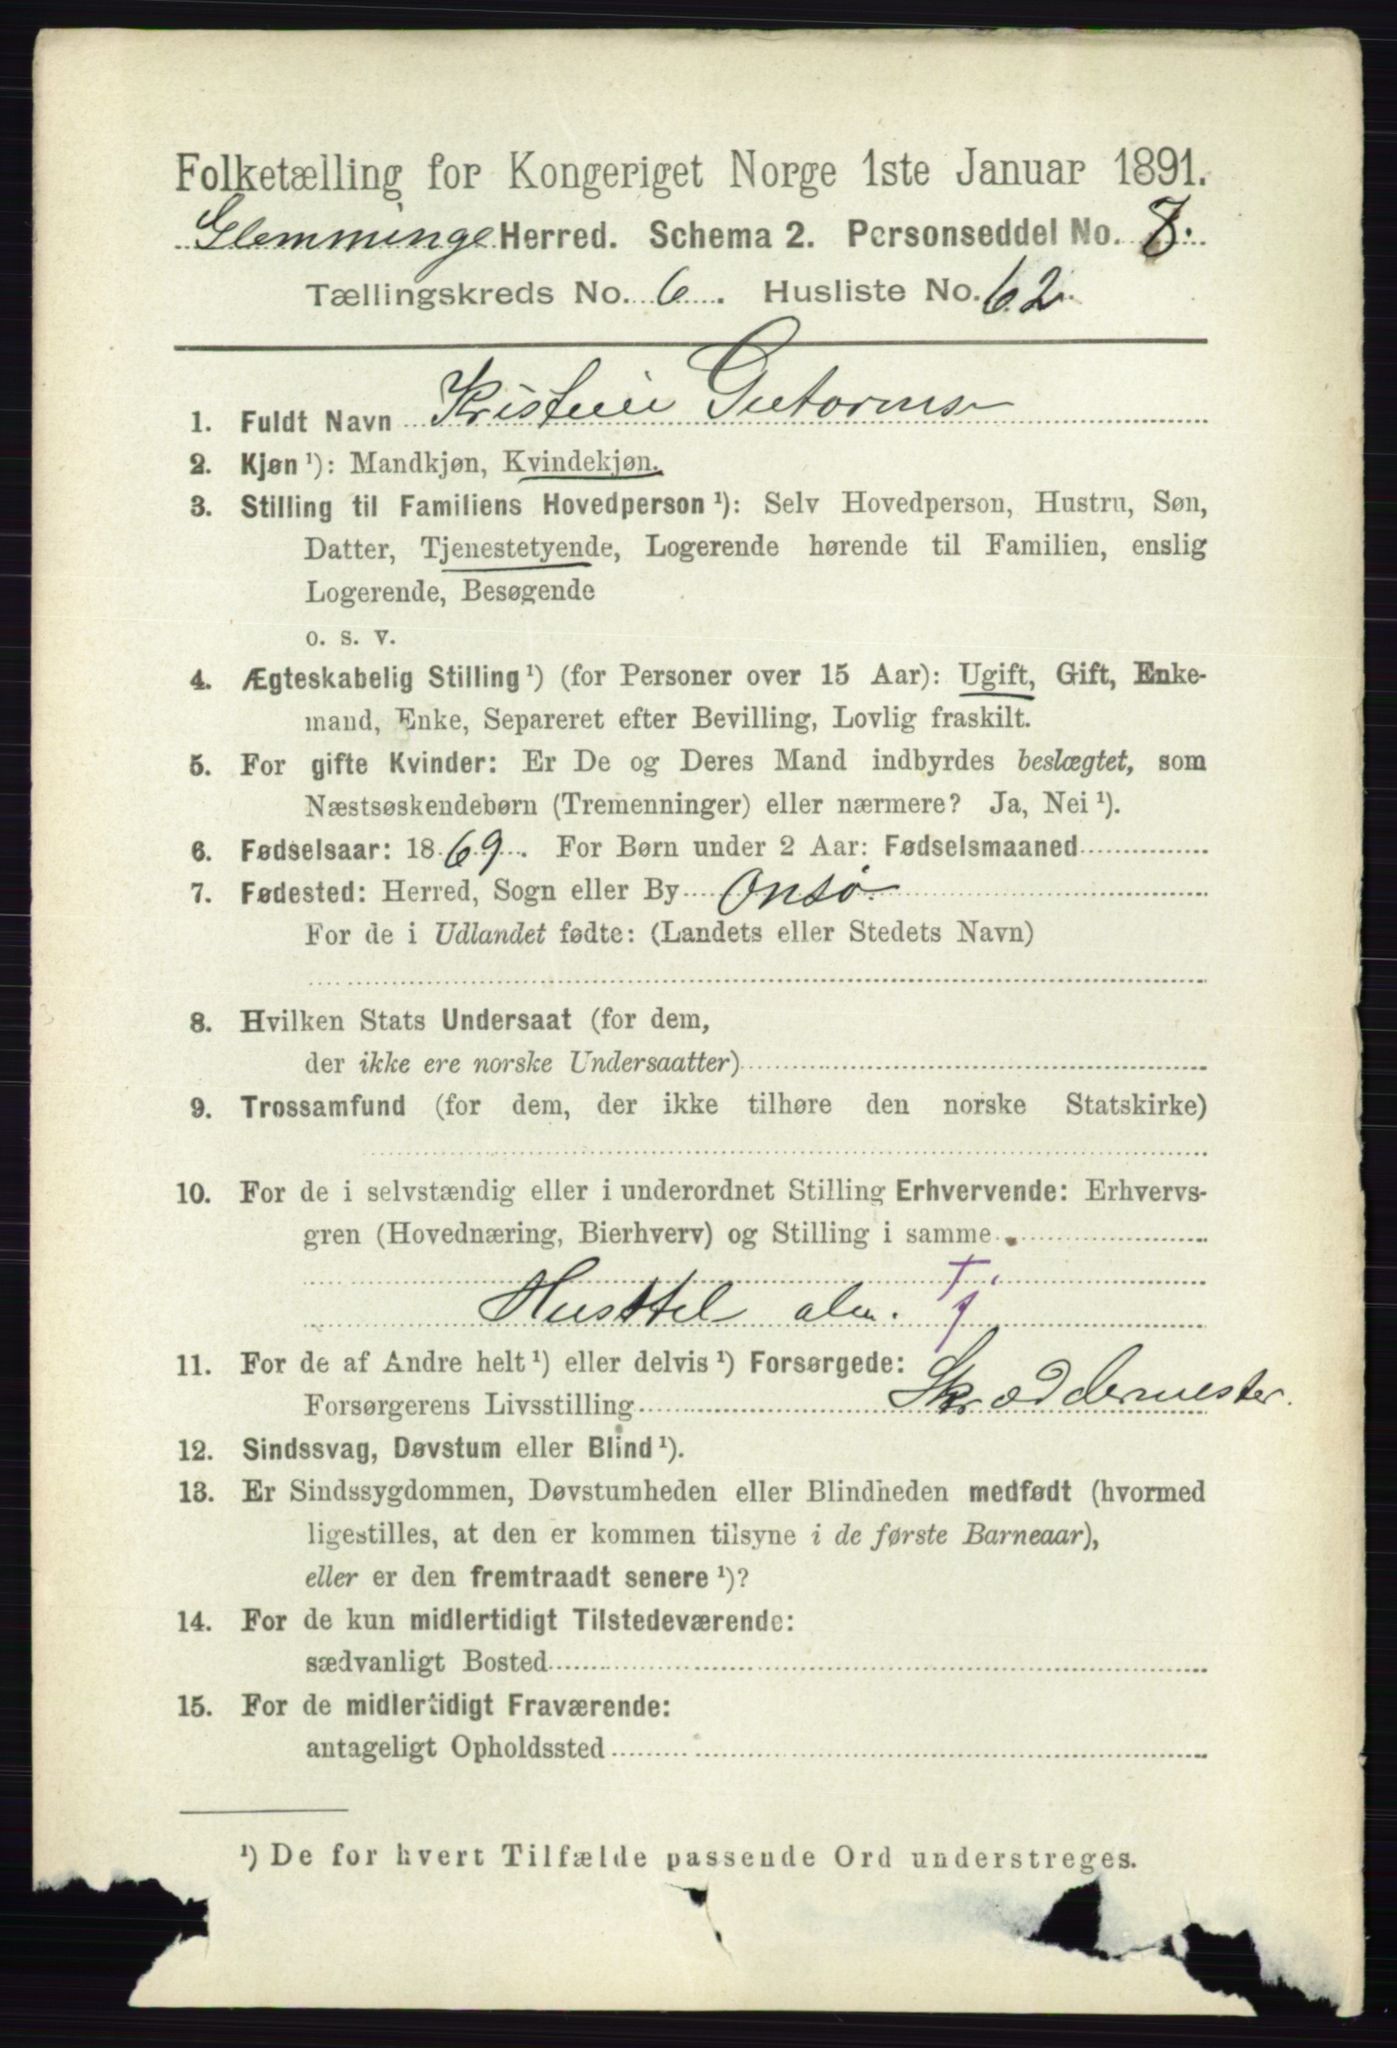 Folketælling for Kongeriget Norge 1ste Januar 1891.
Glemminge Herred. Schema 2. Personseddel No. 8.
Tællingskreds No. 6. Husliste No. 62.
1. Fuldt Navn Kristine Gutorms
2. Kjøn ¹): Mandkjøn, Kvindekjøn.
3. Stilling til Familiens Hovedperson ¹): Selv Hovedperson, Hustru, Søn,
Datter, Tjenestetyende, Logerende hørende til Familien, enslig
Logerende, Besøgende
o. s. v.
4. Ægteskabelig Stilling ¹) (for Personer over 15 Aar): Ugift, Gift, Enke-
mand, Enke, Separeret efter Bevilling, Lovlig fraskilt.
5. For gifte Kvinder: Er De og Deres Mand indbyrdes beslægtet, som
Næstsøskendebørn (Tremenninger) eller nærmere? Ja, Nei ¹).
6. Fødselsaar: 1869. For Børn under 2 Aar: Fødselsmaaned
7. Fødested: Herred, Sogn eller By Onsø.
For de i Udlandet fødte: (Landets eller Stedets Navn)
8. Hvilken Stats Undersaat (for dem,
der ikke ere norske Undersaatter)
9. Trossamfund (for dem, der ikke tilhøre den norske Statskirke)
10. For de i selvstændig eller i underordnet Stilling Erhvervende: Erhvervs-
gren (Hovednæring, Bierhverv) og Stilling i samme
Husstel alm. Tj
11. For de af Andre helt ¹) eller delvis ¹) Forsørgede:
Forsørgerens Livsstilling Skræddermester.
12. Sindssvag, Døvstum eller Blind ¹).
13. Er Sindssygdommen, Døvstumheden eller Blindheden medfødt (hvormed
ligestilles, at den er kommen tilsyne i de første Barneaar),
eller er den fremtraadt senere ¹)?
14. For de kun midlertidigt Tilstedeværende:
sædvanligt Bosted
15. For de midlertidigt Fraværende:
antageligt Opholdssted
¹) De for hvert Tilfælde passende Ord understreges.